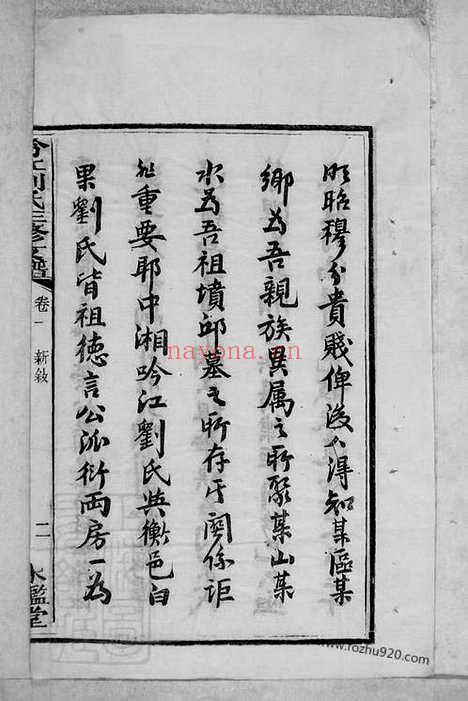 明昭穆分貴賤俾後人得知某區某
鄉為吾親族異属之所聚某山某
水為吾祖墳邱墓之所存其關係詎
非重要耶中湘吟江劉氏與衡邑白
果劉氏皆祖德言公派衍兩房一為
吟江劉氏三修支譜
卷一
新敘
二
氷鑑堂
nayona.cn
www.rozhu920.com